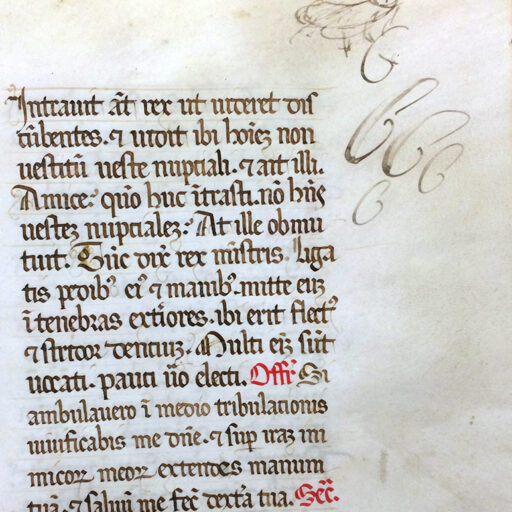 Intrauit aūt rex ut uideret dis
cūbentes. ⁊ uidit ibi hoīez non
uestitū ueste nuptiali. ⁊ ait illi.
Amice: quō huc ītrasti. nō hn̄s
uestez nuptialez: At ille obmu
tuit. Tūc dix̄ rex mīstris. Liga
tis pedibꝰ eiꝰ ⁊ manibꝰ. mitte eūz
ī tenebras extīores. ibi erit fletꝰ
⁊ stridor dentiuz. Multi eīz sūt
uocati. pauci u̅o electi. Offr̄. Si
ambulauero ī medio tribulationis
uiuificabis me dn̄e. ⁊ sup̄ iraz ini
micoꝝ meoꝝ extendes manum
tuā. ⁊ saluū me fec̄ dext̄a tua. Sec̄.